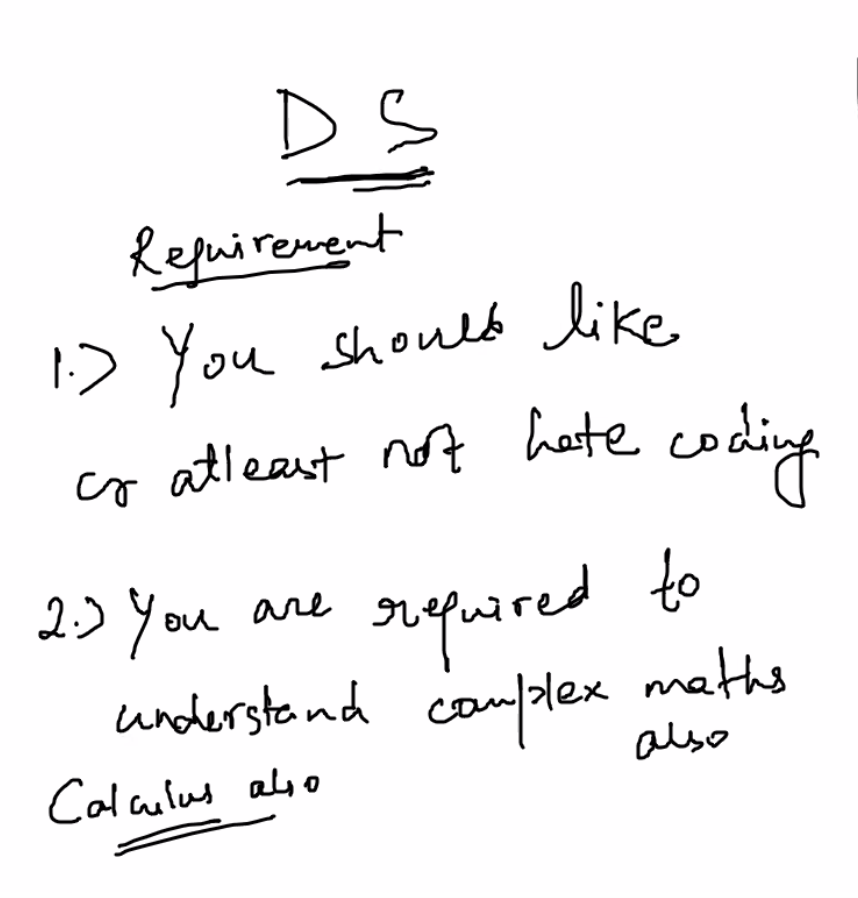 DS
Requirement
1.) You should like
or atleast not hate coding
2.) You are required to
understand complex maths
also
Calculus also